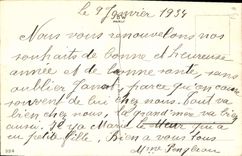 le 9 Janvier 1934
Nous vous renouvelons nos
souhaits de bonne et heureuse
année et de bonne santé, sans
oublier Janot, parce qu'on cause
souvent de lui chez nous. Tout va
bien chez nous, la grand'mère va très
aussi. Marie le qui a
eu petite fille. Bien à vous tous
Mme